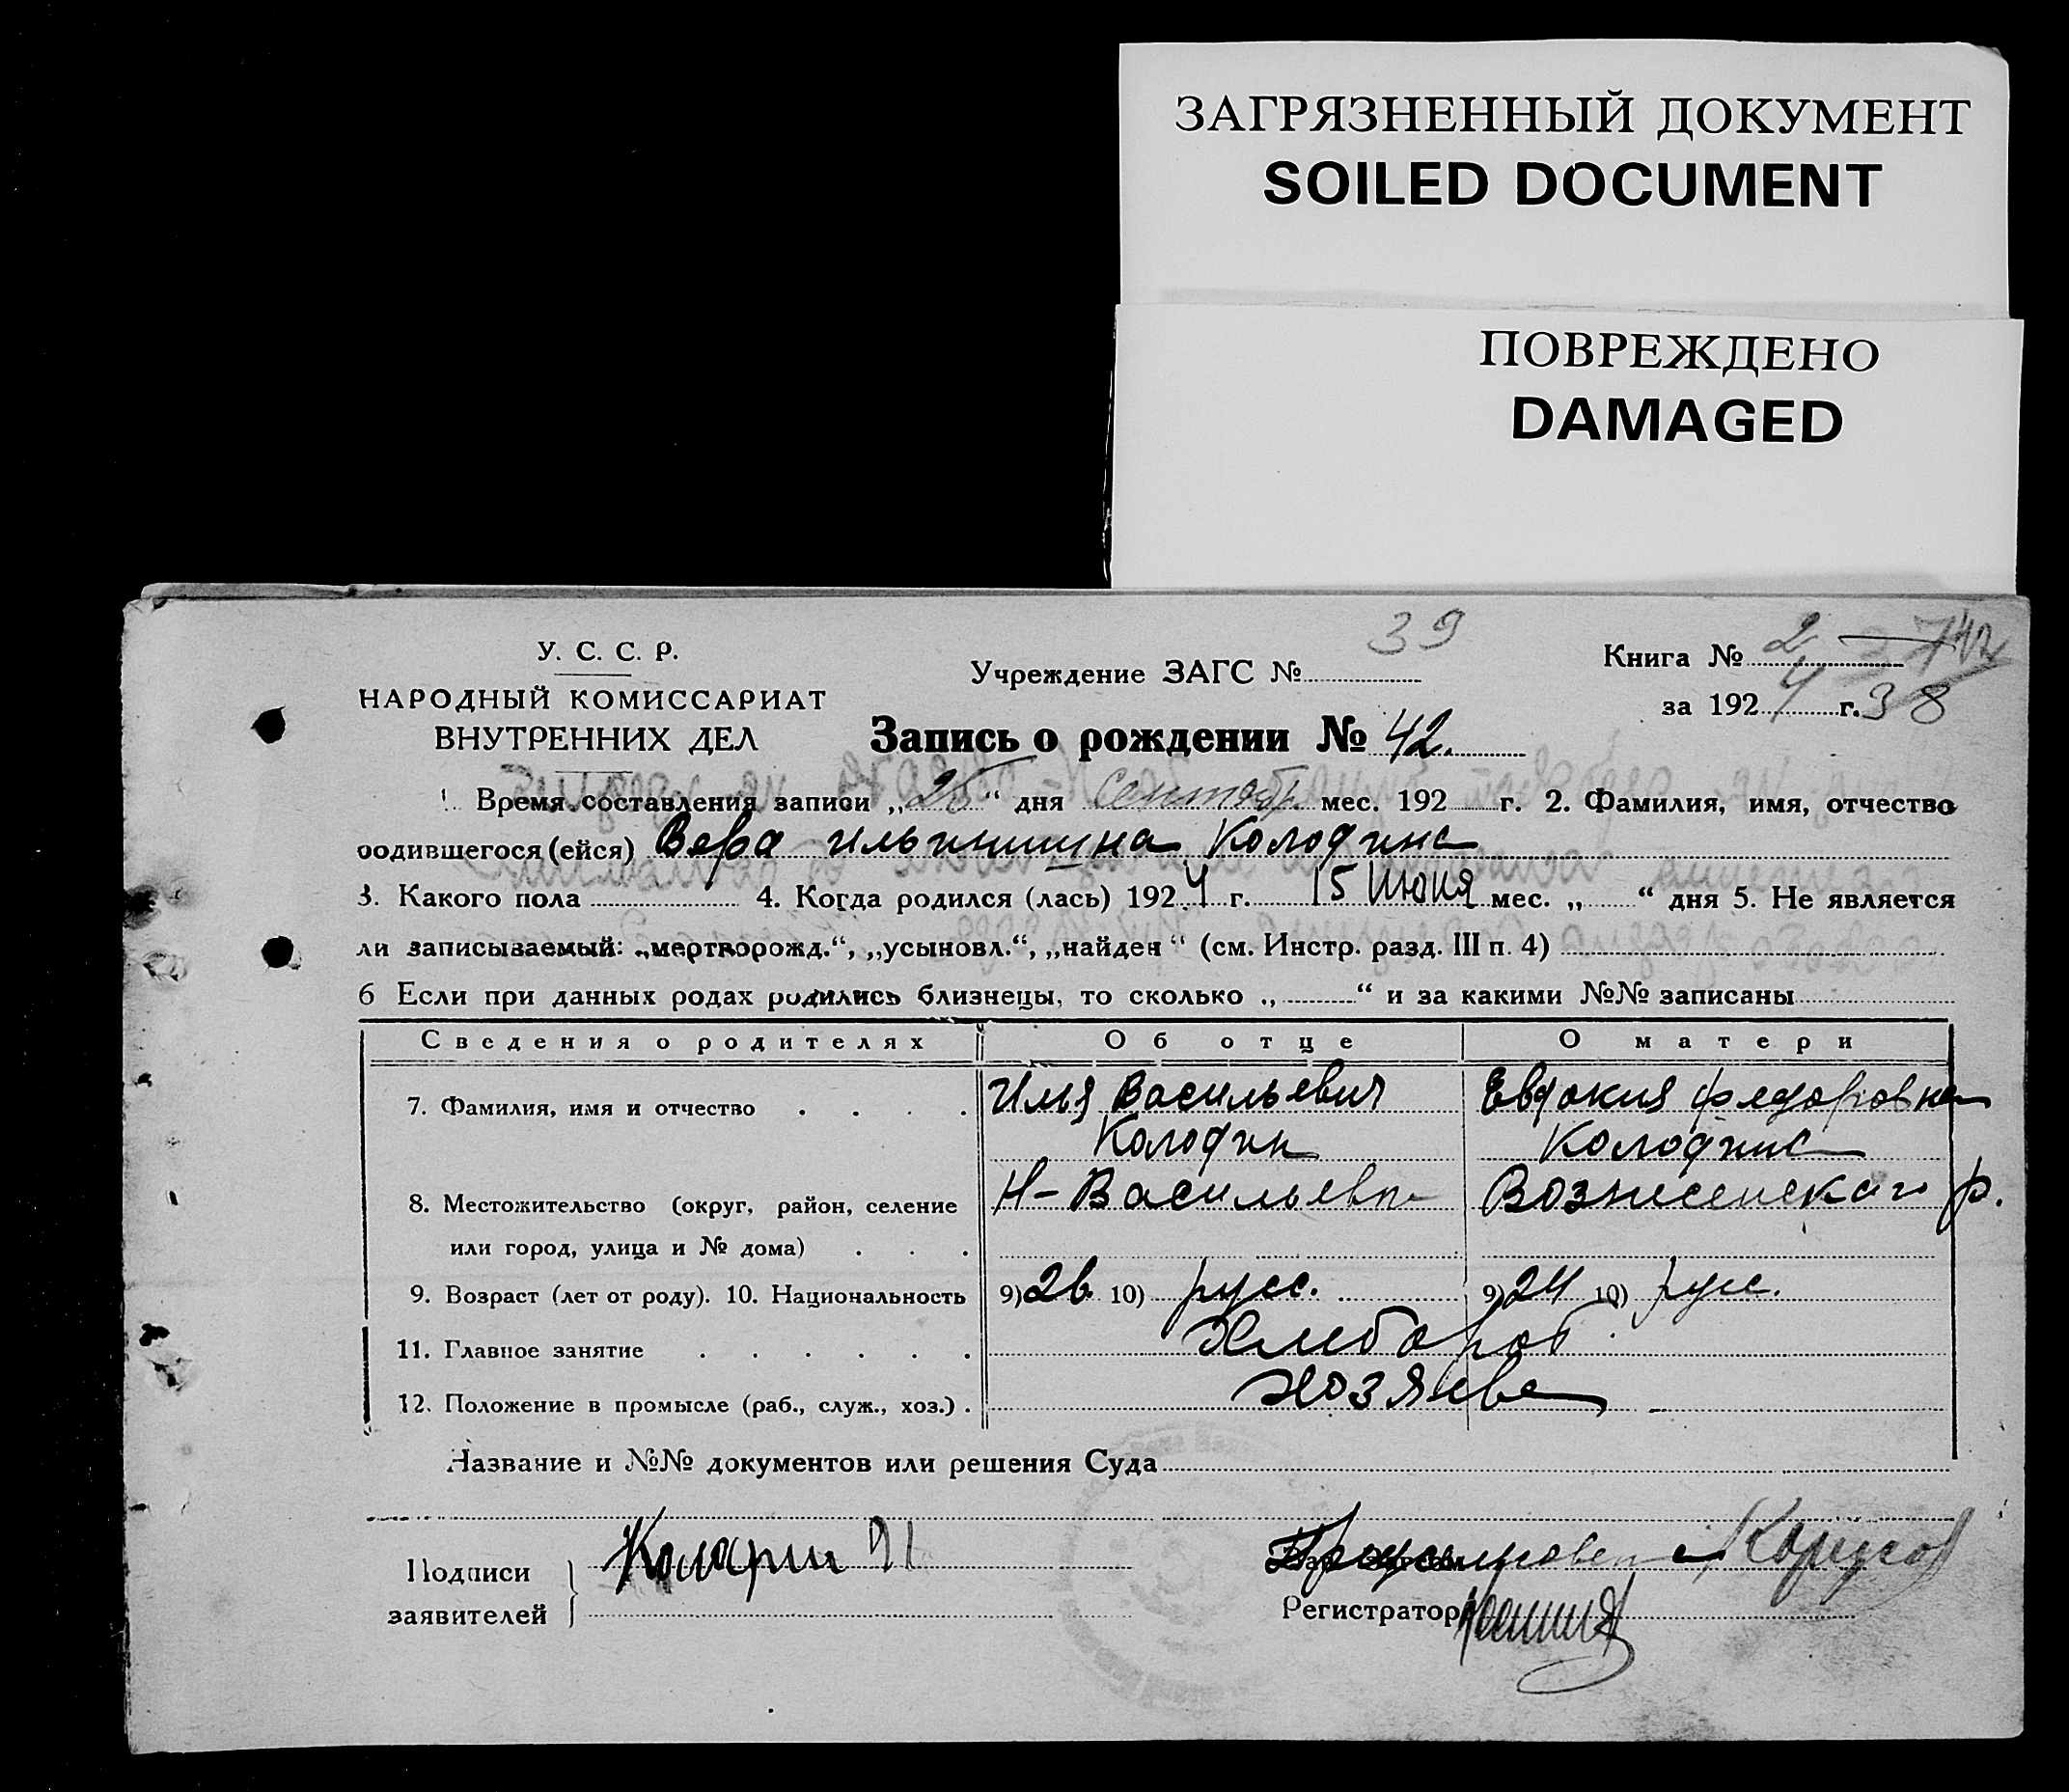 ЗАГРЯЗНЕННЫЙ ДОКУМЕНТ
SOILED DOCUMENT
ПОВРЕЖДЕНО
DAMAGED
39
У. С. С. Р.
Учреждение ЗАГС №
Книга № 2
НАРОДНЫЙ КОМИССАРИАТ
за 1924 г. 38
ВНУТРЕННИХ ДЕЛ
Запись о рождении № 42.
Время составления записи „25“ дня Сентябр мес. 192 г. 2. Фамилия, имя, отчество
родившегося (ейся) Вера Ильинишна Колодина
3. Какого пола 4. Когда родился (лась) 1924 г. 15 Июня мес. „ “ дня 5. Не является
ли записываемый: „мертворожд.“, „усыновл.“, „найден“ (см. Инстр. разд. III п. 4)
6 Если при данных родах родились близнецы, то сколько „ “ и за какими №№ записаны
Сведения о родителях Об отце О матери
7. Фамилия, имя и отчество Илья Васильевич Евдокия Федоровна
Колодин Колодина
8. Местожительство (округ, район, селение Н-Васильевк Вознесенскаго р.
или город, улица и № дома)
9. Возраст (лет от роду). 10. Национальность 9) 26 10) русс. 9) 24 10) русс.
11. Главное занятие Хлебороб
12. Положение в промысле (раб., служ., хоз.) хозяева
Название и №№ документов или решения Суда
Подписи
заявителей
Регистратор